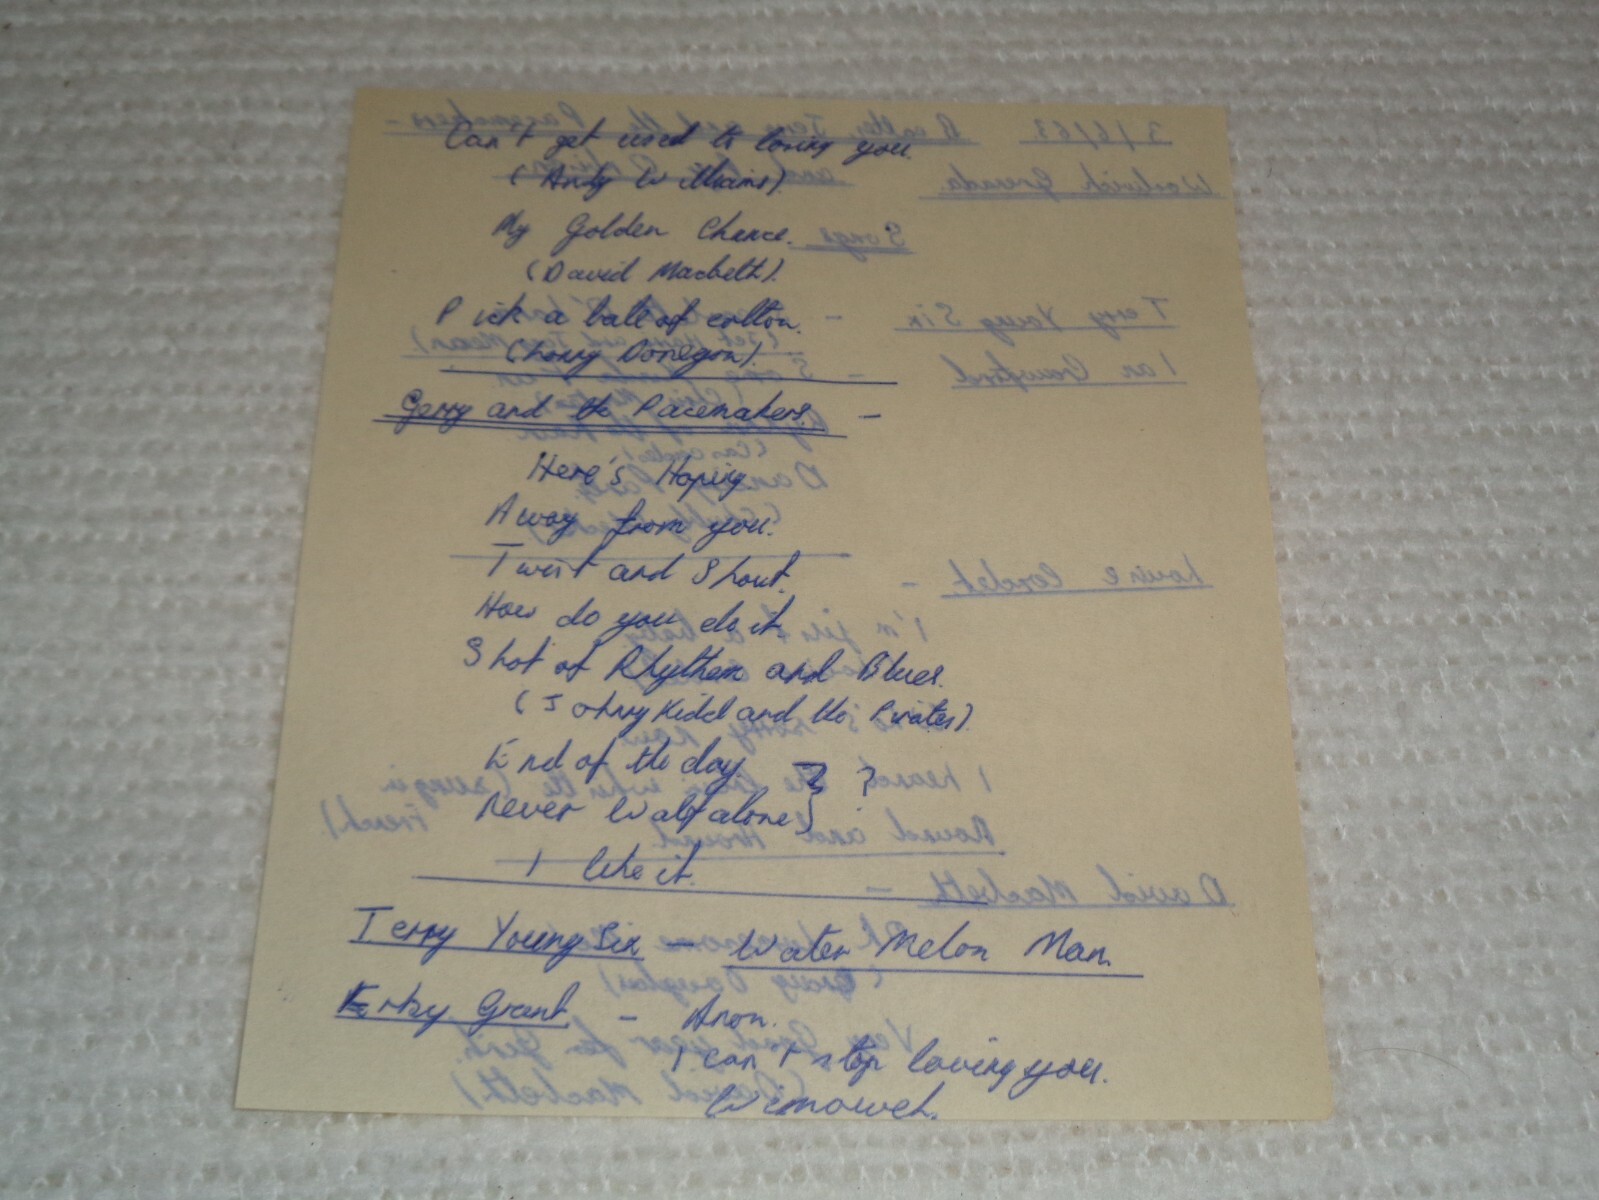 Can't get used to loving you.
(Andy Williams).
My Golden Chance.
(David Macbeth).
Pick a bale of cotton.
(Lonny Donegon).
Gerry and the Pacemakers. -
Here's Hoping
Away from you.
Twist and Shout.
How do you do it
Shot of Rhythem and Blues.
(Johnny Kidd and the Pirates).
End of the day } ?
Never Walk alone }
I like it.
Terry Young Six - Water Melon Man.
Erky Grant - Anon.
I can't stop loving you.
Wimoweh.